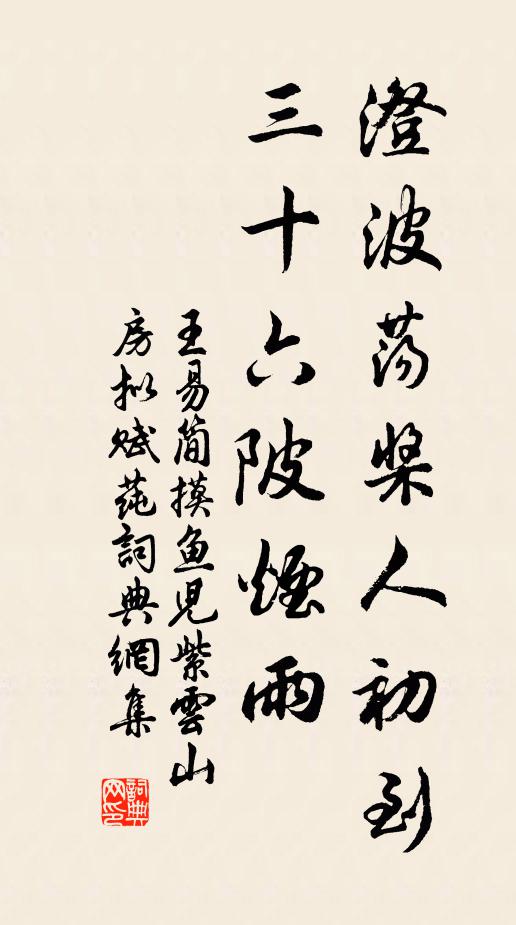 澄波荡桨人初到
三十六陂煙雨
王易简摸鱼児紫雲山
房拟赋莼詞典網集
詞典
网印